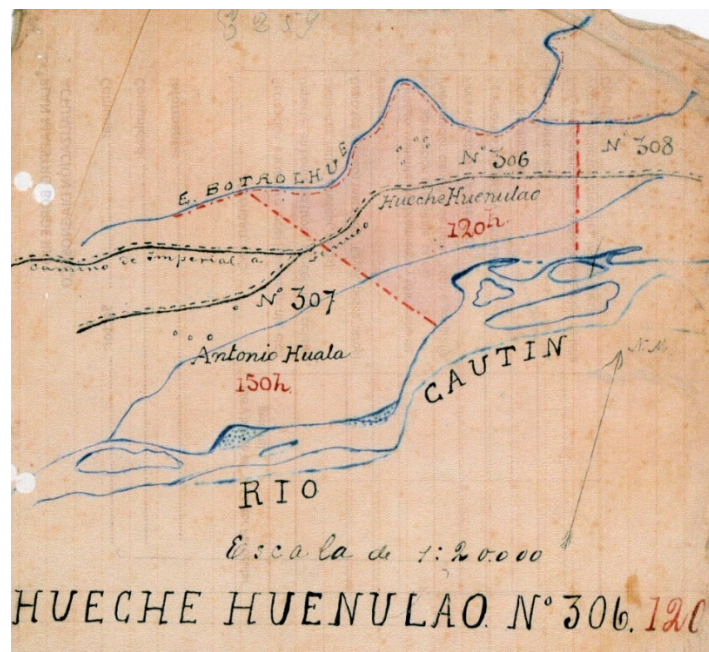 3259
E. BOTROLHUE
Nº 306
Nº 308
Hueche Huenulao
120h.
Camino de Imperial a Temuco
Nº 307
Antonio Huala
150h.
CAUTIN
N.M.
RIO
Escala de 1:20.000
HUECHE HUENULAO. Nº 306. 120